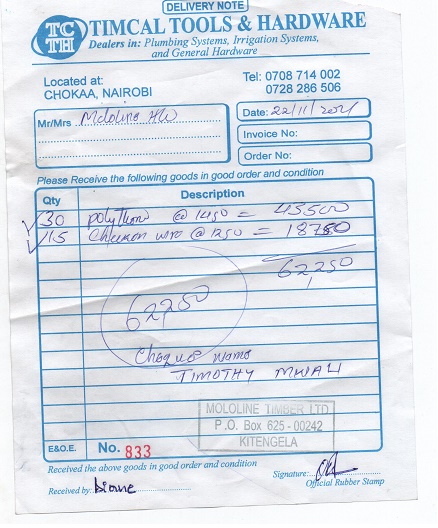 DELIVERY NOTE
TC
TH
TIMCAL TOOLS & HARDWARE
Dealers in: Plumbing Systems, Irrigation Systems,
and General Hardware
Located at:
CHOKAA, NAIROBI
Tel: 0708 714 002
0728 286 506
Mr/Mrs Mololine H/W
Date: 22/11/2021
Invoice No:
Order No:
Please Receive the following goods in good order and condition
Qty Description
30 @ 1450 = 43500
15 wire @ 1250 = 18750
62,250
62,250
Cheque name
TIMOTHY MWALI
MOLOLINE TIMBER LTD
P.O. Box 625 - 00242
KITENGELA
E&O.E. No. 833
Received the above goods in good order and condition
Signature:
Official Rubber Stamp
Received by: